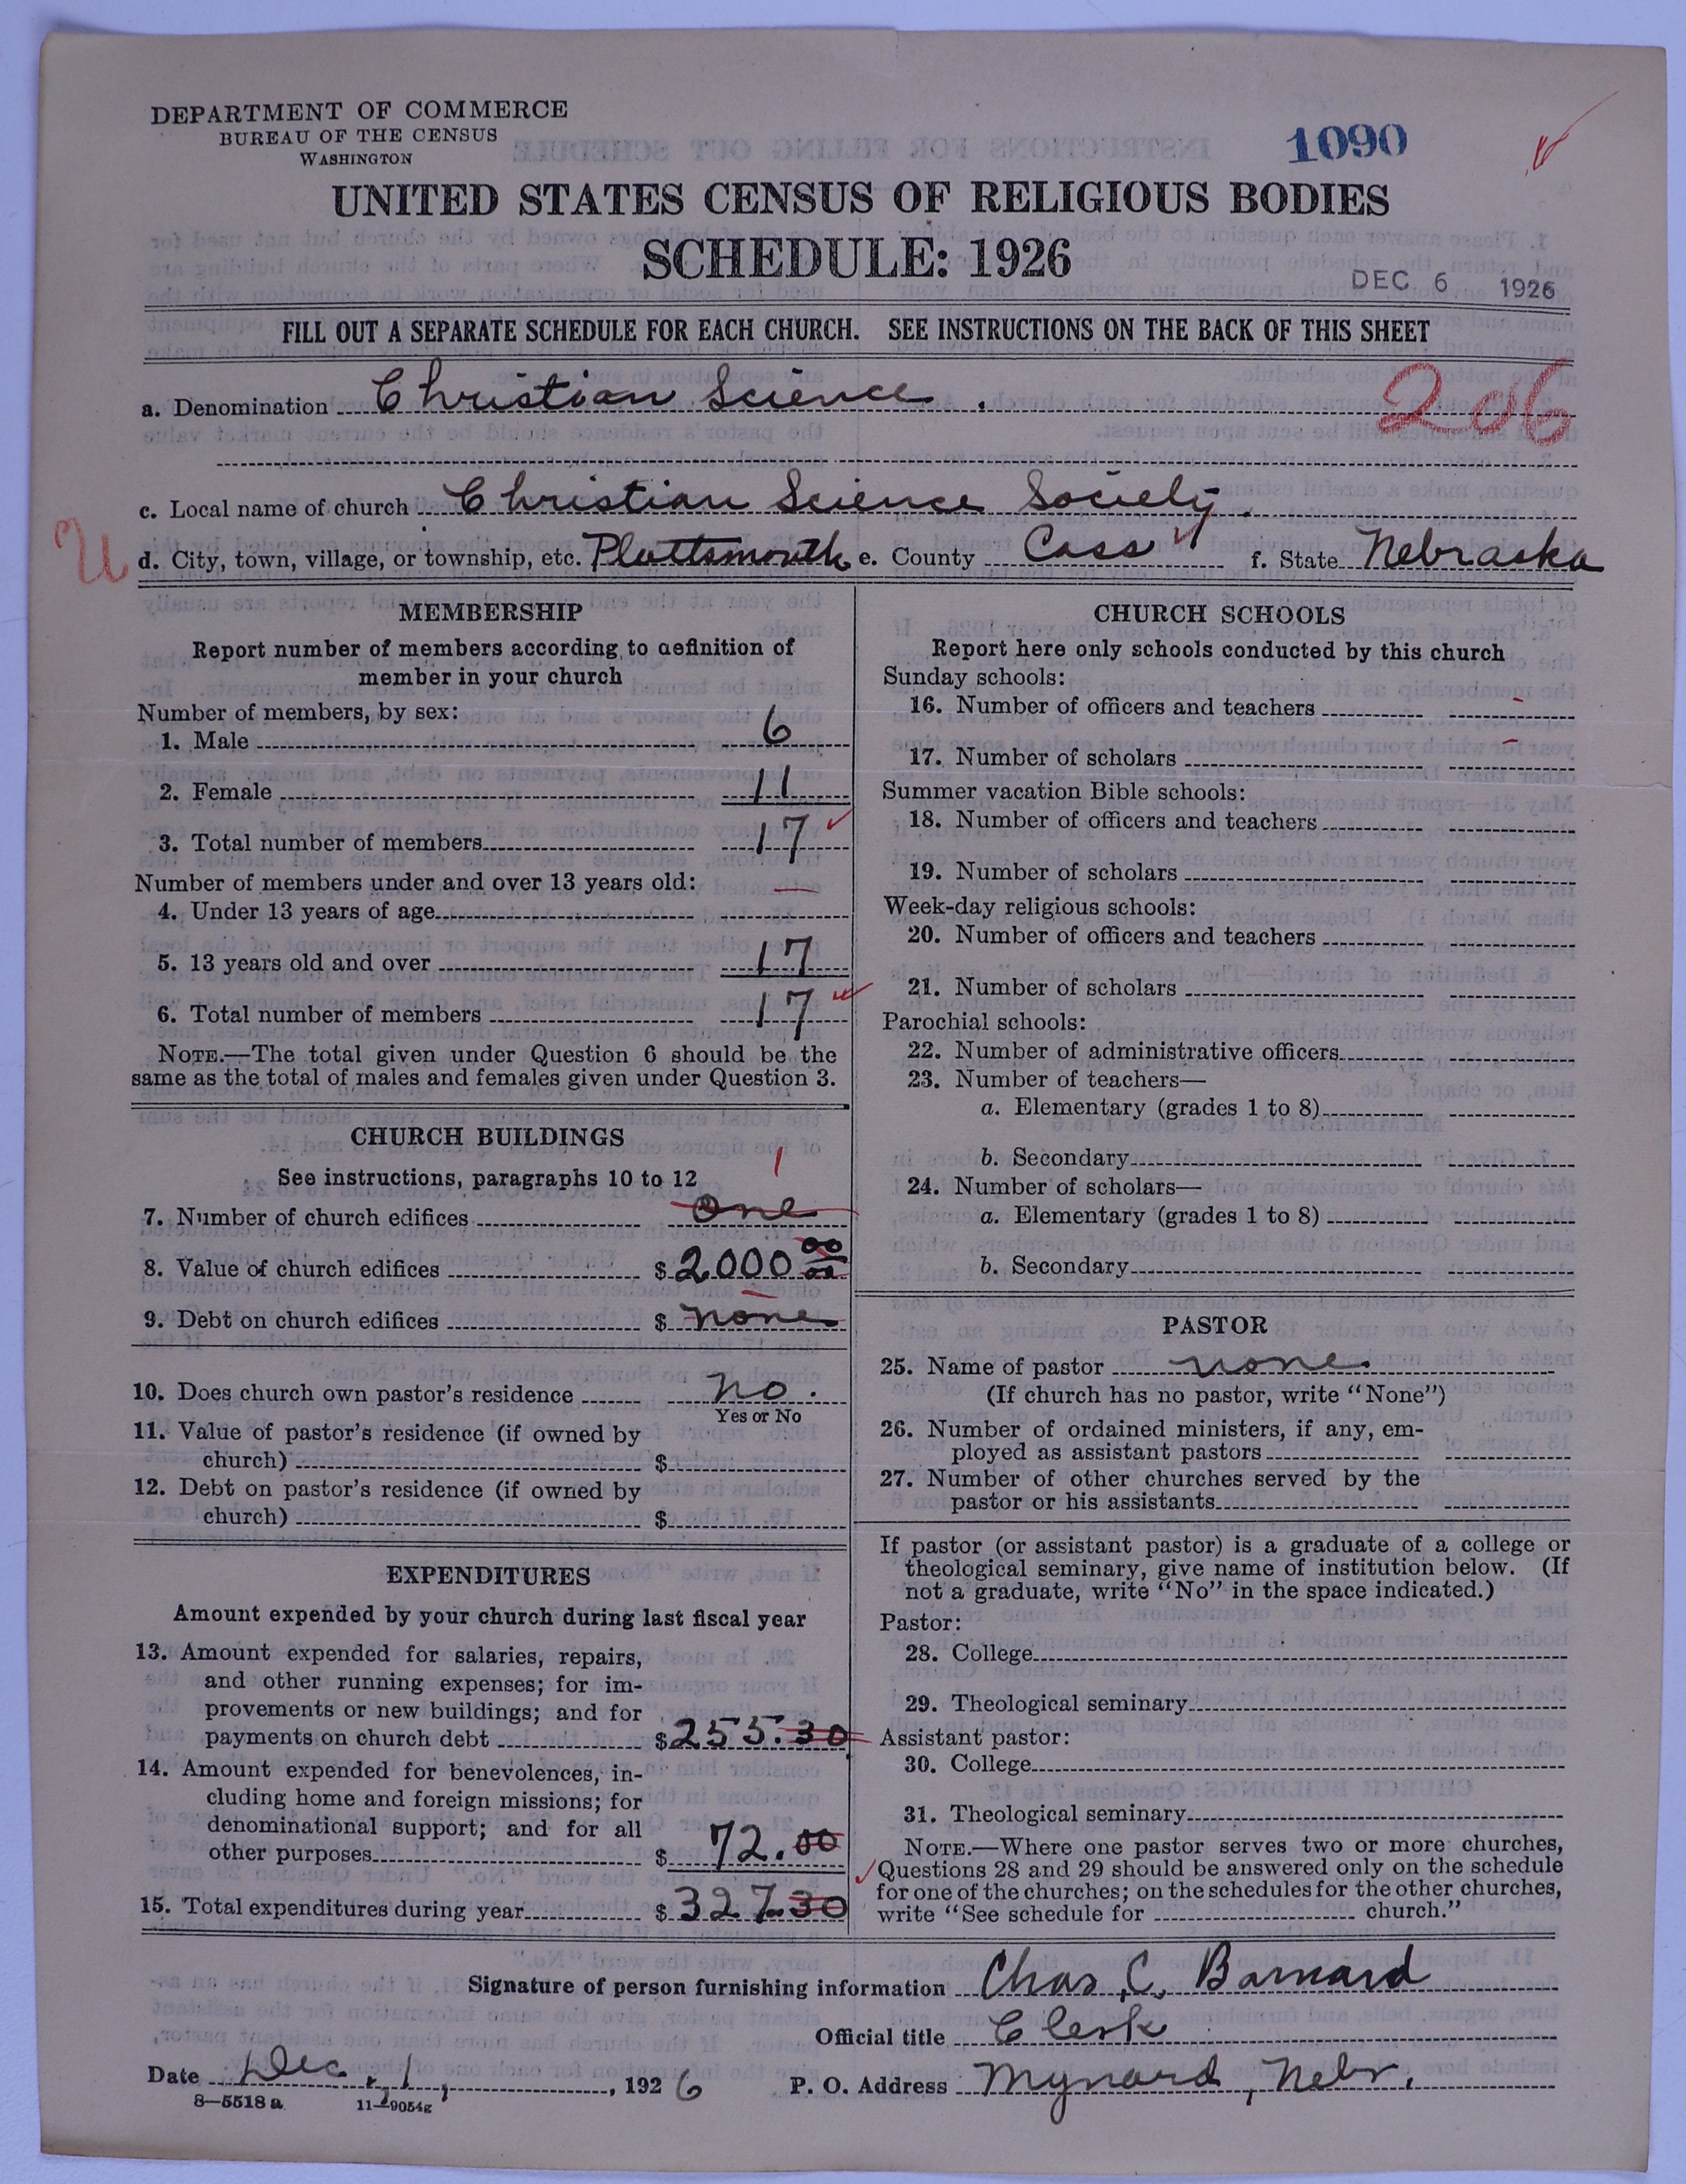 DEPARTMENT OF COMMERCE
BUREAU OF THE CENSUS
WASHINGTON
1090
UNITED STATES CENSUS OF RELIGIOUS BODIES
SCHEDULE: 1926
DEC 6 1926
FILL OUT A SEPARATE SCHEDULE FOR EACH CHURCH. SEE INSTRUCTIONS ON THE BACK OF THIS SHEET
a. Denomination Christian Science.
206
c. Local name of church Christian Science Society.
U
d. City, town, village, or township, etc. Plattsmouth e. County Cass f. State Nebraska
MEMBERSHIP
Report number of members according to definition of
member in your church
Number of members, by sex:
1. Male 6
2. Female 11
3. Total number of members 17
Number of members under and over 13 years old:
4. Under 13 years of age —
5. 13 years old and over 17
6. Total number of members 17
NOTE.—The total given under Question 6 should be the
same as the total of males and females given under Question 3.
CHURCH BUILDINGS
See instructions, paragraphs 10 to 12
1
7. Number of church edifices one
8. Value of church edifices $2000 00
9. Debt on church edifices $ none
10. Does church own pastor's residence no.
Yes or No
11. Value of pastor's residence (if owned by
church) $
12. Debt on pastor's residence (if owned by
church) $
EXPENDITURES
Amount expended by your church during last fiscal year
13. Amount expended for salaries, repairs,
and other running expenses; for im-
provements or new buildings; and for
payments on church debt $255.30
14. Amount expended for benevolences, in-
cluding home and foreign missions; for
denominational support; and for all
other purposes $ 72.00
15. Total expenditures during year $ 327.30
CHURCH SCHOOLS
Report here only schools conducted by this church
Sunday schools:
16. Number of officers and teachers -
17. Number of scholars -
Summer vacation Bible schools:
18. Number of officers and teachers
19. Number of scholars
Week-day religious schools:
20. Number of officers and teachers
21. Number of scholars
Parochial schools:
22. Number of administrative officers
23. Number of teachers—
a. Elementary (grades 1 to 8)
b. Secondary
24. Number of scholars—
a. Elementary (grades 1 to 8)
b. Secondary
PASTOR
25. Name of pastor none.
(If church has no pastor, write "None")
26. Number of ordained ministers, if any, em-
ployed as assistant pastors
27. Number of other churches served by the
pastor or his assistants
If pastor (or assistant pastor) is a graduate of a college or
theological seminary, give name of institution below. (If
not a graduate, write "No" in the space indicated.)
Pastor:
28. College
29. Theological seminary
Assistant pastor:
30. College
31. Theological seminary
NOTE.—Where one pastor serves two or more churches,
Questions 28 and 29 should be answered only on the schedule
for one of the churches; on the schedules for the other churches,
write "See schedule for church."
Signature of person furnishing information Chas. C. Barnard
Official title Clerk
Date Dec. 1, 1926 P. O. Address Mynard, Nebr.
8—5518 a 11—9054g